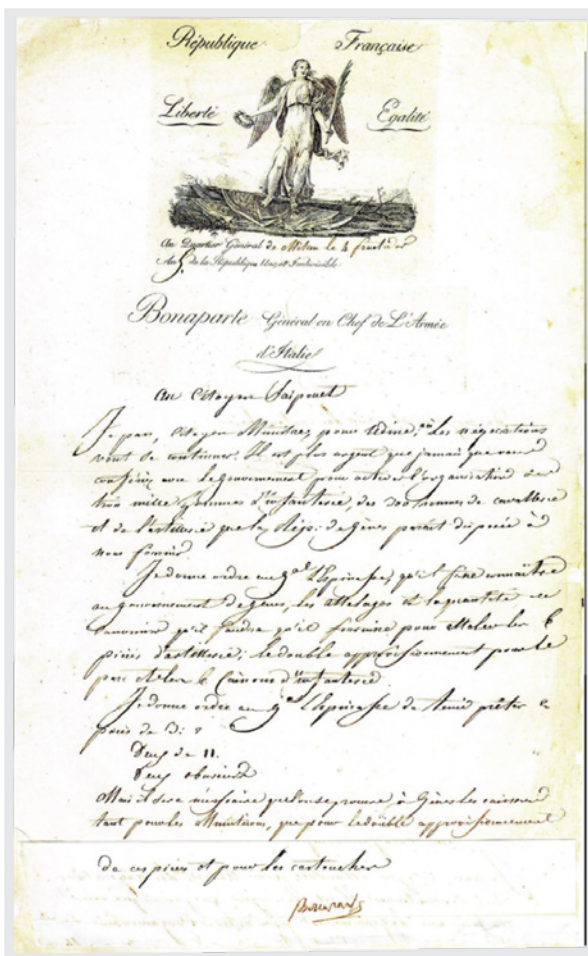 République Française
Liberté Egalité
Au Quartier Général de Milan le 4 fructidor
An 5 de la République Une et Indivisible
Bonaparte Général en Chef de L'Armée
d'Italie
au Citoyen Faipoult
Je pars, Citoyen Ministre, pour Udine, où les négociations
vont se continuer. Il est plus urgent que jamais que vous
avec le gouvernement pour activer l'organisation des
trois mille hommes d'infanterie, des 300 hommes de cavallerie
et de l'artillerie que la Rép: de Gênes paraît disposée à
nous fournir.
Je donne ordre au gal Lespinasse, qu'il fasse connaître
au gouvernement de gênes, les attelages et la quantité de
qu'il faudra qu'il fournisse pour atteler les 6
pièces d'artillerie; le double approvisionnement pour le
parc et les 6 Caissons d'infanterie
Je donne ordre au gal Lespinasse de tenir prêtes 2
pièces de 3:
Deux de 11.
Deux obusiers
Mais il sera nécessaire que l'on se procure, à Gênes les caissons
tant pour les Munitions, que pour le double approvisionnement
de ces pièces et pour les cartouches
Bonaparte